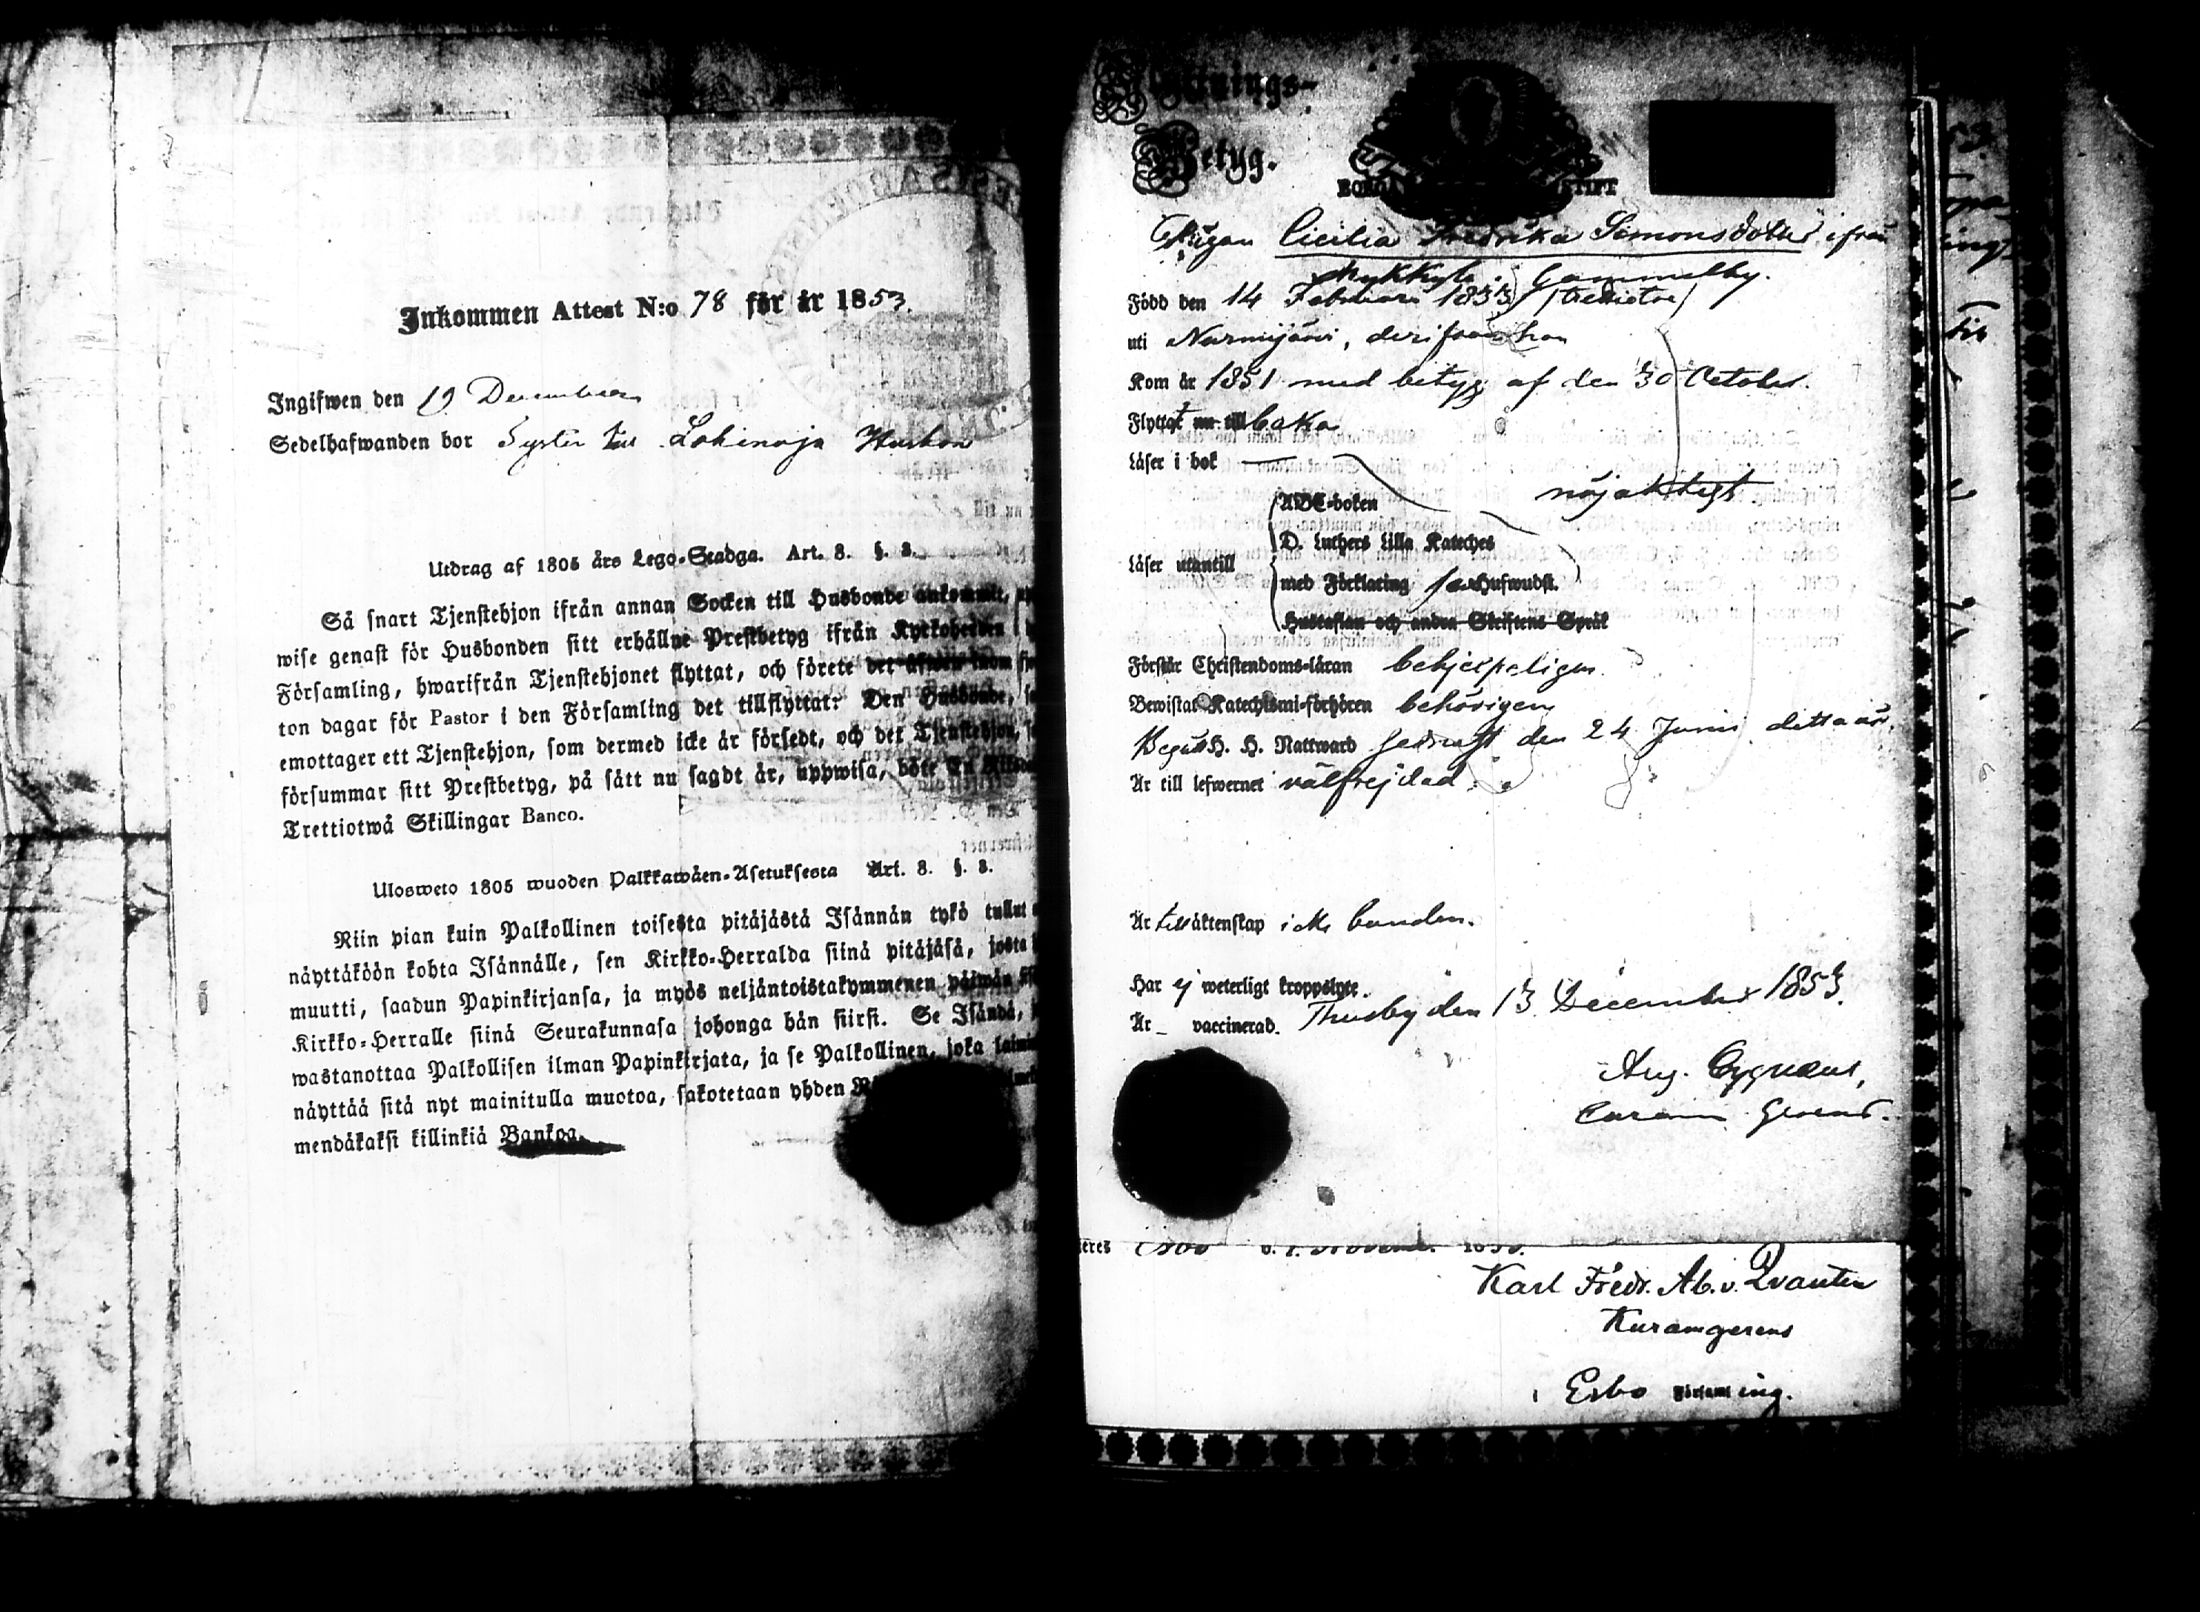 Inkommen Attest N:o 78 för år 1853.
Ingifwen den 19 December
Sedelhafwanden bor Syster till Lahinoja Husbon
Utdrag af 1805 års Lego-Stadga. Art. 8. §. 3.
Så snart Tjenstehjon ifrån annan Socken till Husbonde ankommit,
wise genast för Husbonden sitt erhållne Prestbetyg ifrån Kyrkoherden i
Församling, hwarifrån Tjenstehjonet flyttat, och förete det äfwen inom
ton dagar för Pastor i den Församling det tillflyttat: Den Husbonde,
emottager ett Tjenstehjon, som dermed icke är försedt, och det Tjenstehjon,
försummar sitt Prestbetyg, på sätt nu sagdt är, uppwisa, böte En
Trettiotwå Skillingar Banco.
Ulosweto 1805 wuoden Palkkawäen-Asetuksesta Art. 8. §. 3.
Niin pian kuin Palkollinen toisesta pitäjästä Isännän tykö tullut
näyttäköön kohta Isännälle, sen Kirkko-Herralda siinä pitäjäsä, josta
muutti, saadun Papinkirjansa, ja myös neljäntoistakymmenen päiwän
Kirkko-Herralle siinä Seurakunnasa johonga hän siirsi. Se Isändä,
wastanottaa Palkollisen ilman Papinkirjata, ja se Palkollinen, joka
näyttää sitä nyt mainitulla muotoa, sakotetaan yhden
mendäkaksi killinkiä Bankoa.
Flyttnings-
Betyg.
BORGÅ STIFT
Pigan Cicilia Fredrika Simonsdotter ifrån
Nykkylä Gammelby.
Född den 14 Februari 1833
uti Nurmijärvi, derifrån hon
Kom år 1851 med betyg af den 30 October.
Flyttat nu till baka
Läser i bok
nöjaktigt
ABC-boken
D. Luthers Lilla Kateches
Läser utantill
med Förklaring Hufwudst.
Hustaflan och andra Skriftens Språk
Förstår Christendoms-läran behjelpeligen
Bewistat Katechismi-förhören behörigen
Begått H. H. Nattward sednast den 24 Junii detta år.
Är till lefwernet välfrejdad.
Är till äktenskap icke bunden.
Har ej weterligt kroppslyte.
Är vaccinerad. Thusby den 13 December 1853.
Aug. Cygnæus,
Karl Fredr. Ab. v. Qvanten
Kuramgerens
i Esbo Församling.